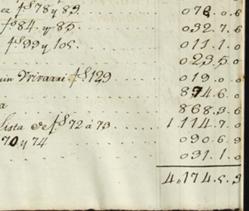 fs 78 y 83. 076.0.6
fs 84. y 85. 032.7.6
fs 99 y 105. 011.1.0
023.5.0
fs 129 019.0.
874.6.0
a 868.3.6
Lista de fs 72 a 73 1114.7.
70 y 74 090.6.9
031.1.0
4.174.5.3